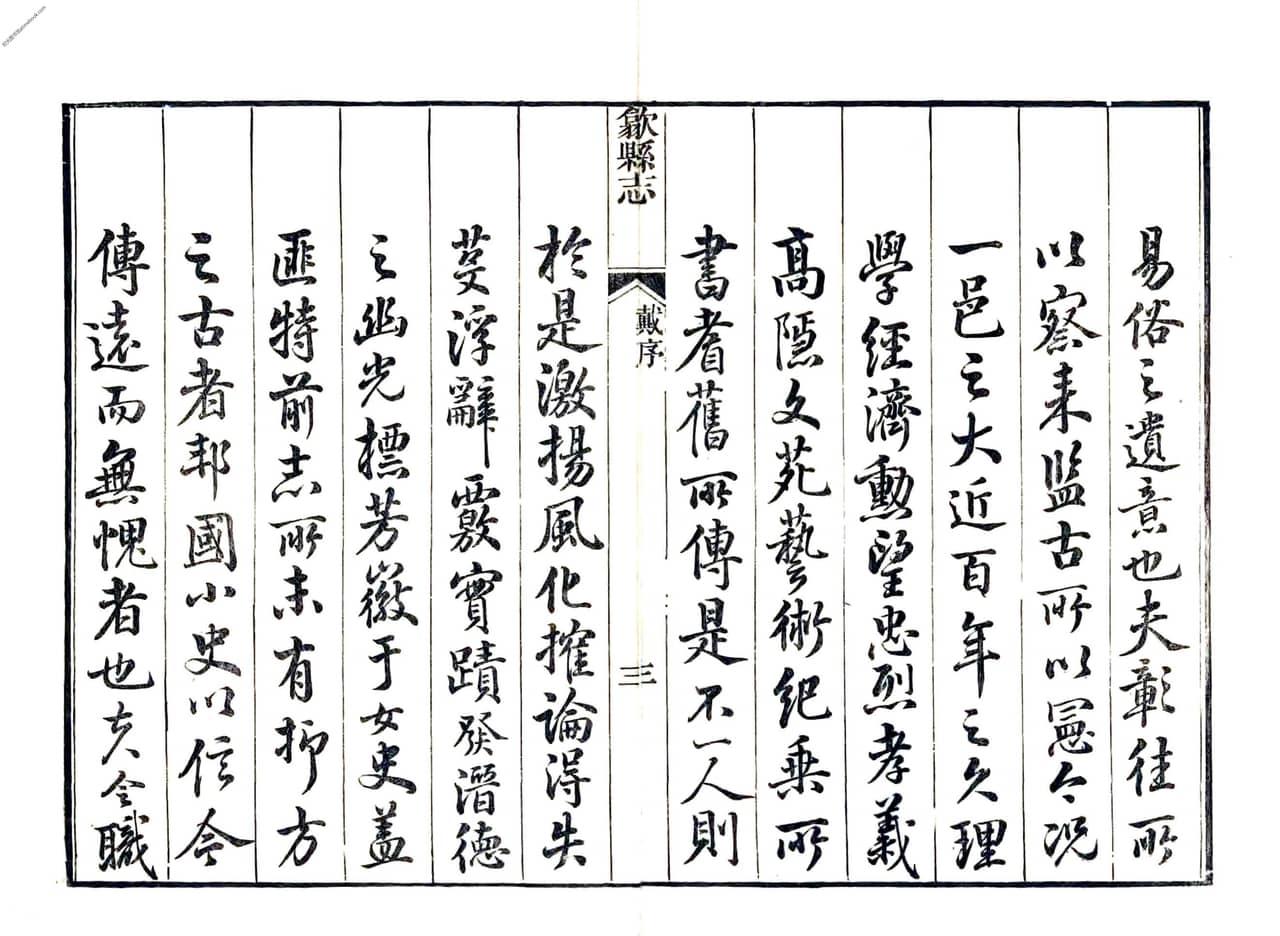 易俗之遺意也夫彰往所
以察来監古所以憲今况
一邑之大近百年之久理
學經濟勳望忠烈孝義
高隱文苑藝術紀乗所
書耆舊所傳是不一人則
歙縣志
戴序
三
於是激揚風化搉論得失
芟浮辭覈實蹟發潛德
之幽光標芳徽于女史盖
匪特前志所未有抑方
之古者邦國小史以信今
傳遠而無愧者也夫令職